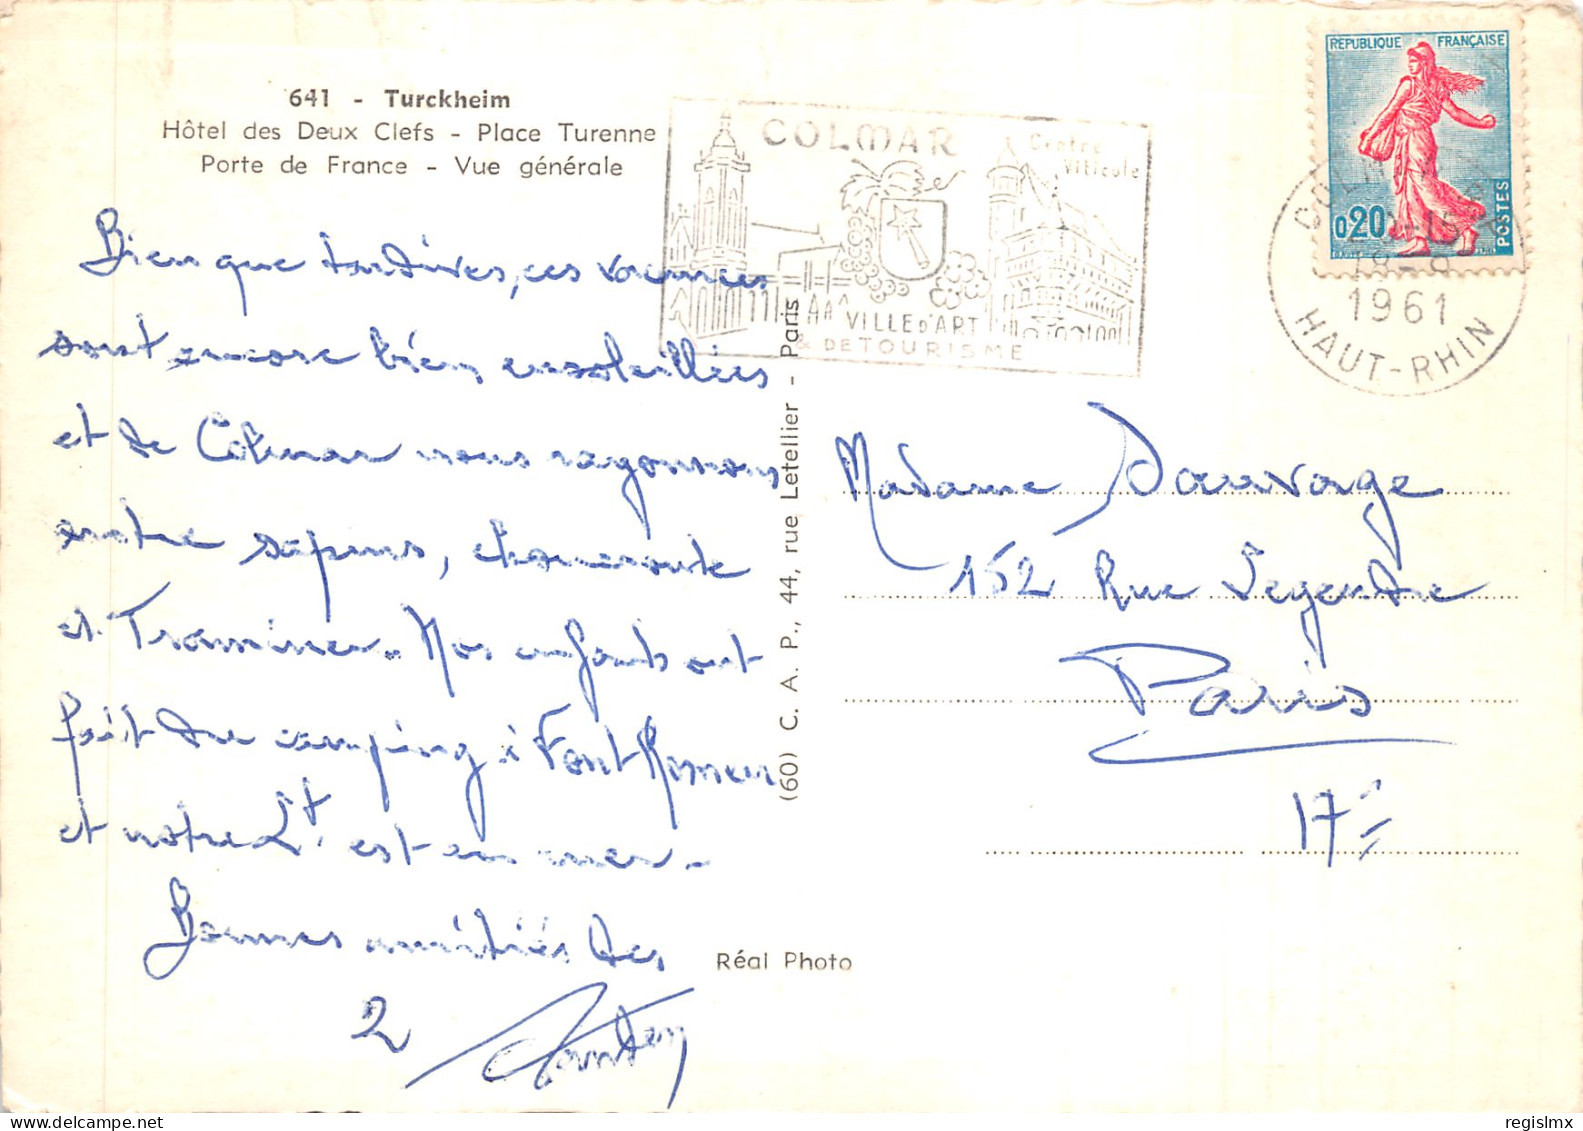 641 - Turckheim
Hôtel des Deux Clefs - Place Turenne
Porte de France - Vue générale
COLMAR
Centre
Viticole
VILLE D'ART
& DE TOURISME
REPUBLIQUE FRANÇAISE
0,20
POSTES
COLMAR
1961
HAUT-RHIN
Bien que tardives, ces vacances
sont encore bien ensoleillées
et de Colmar nous rayonnons
entre sapins, choucroute
et Traminer. Nos enfants ont
fait du camping à Font Romeu
et notre Lt. est en mer.
Bonnes amitiés des
2
(60) C. A. P., 44, rue Letellier - Paris
Madame Sauvage
152 Rue Legendre
Paris
17è
Réal Photo
regislmx